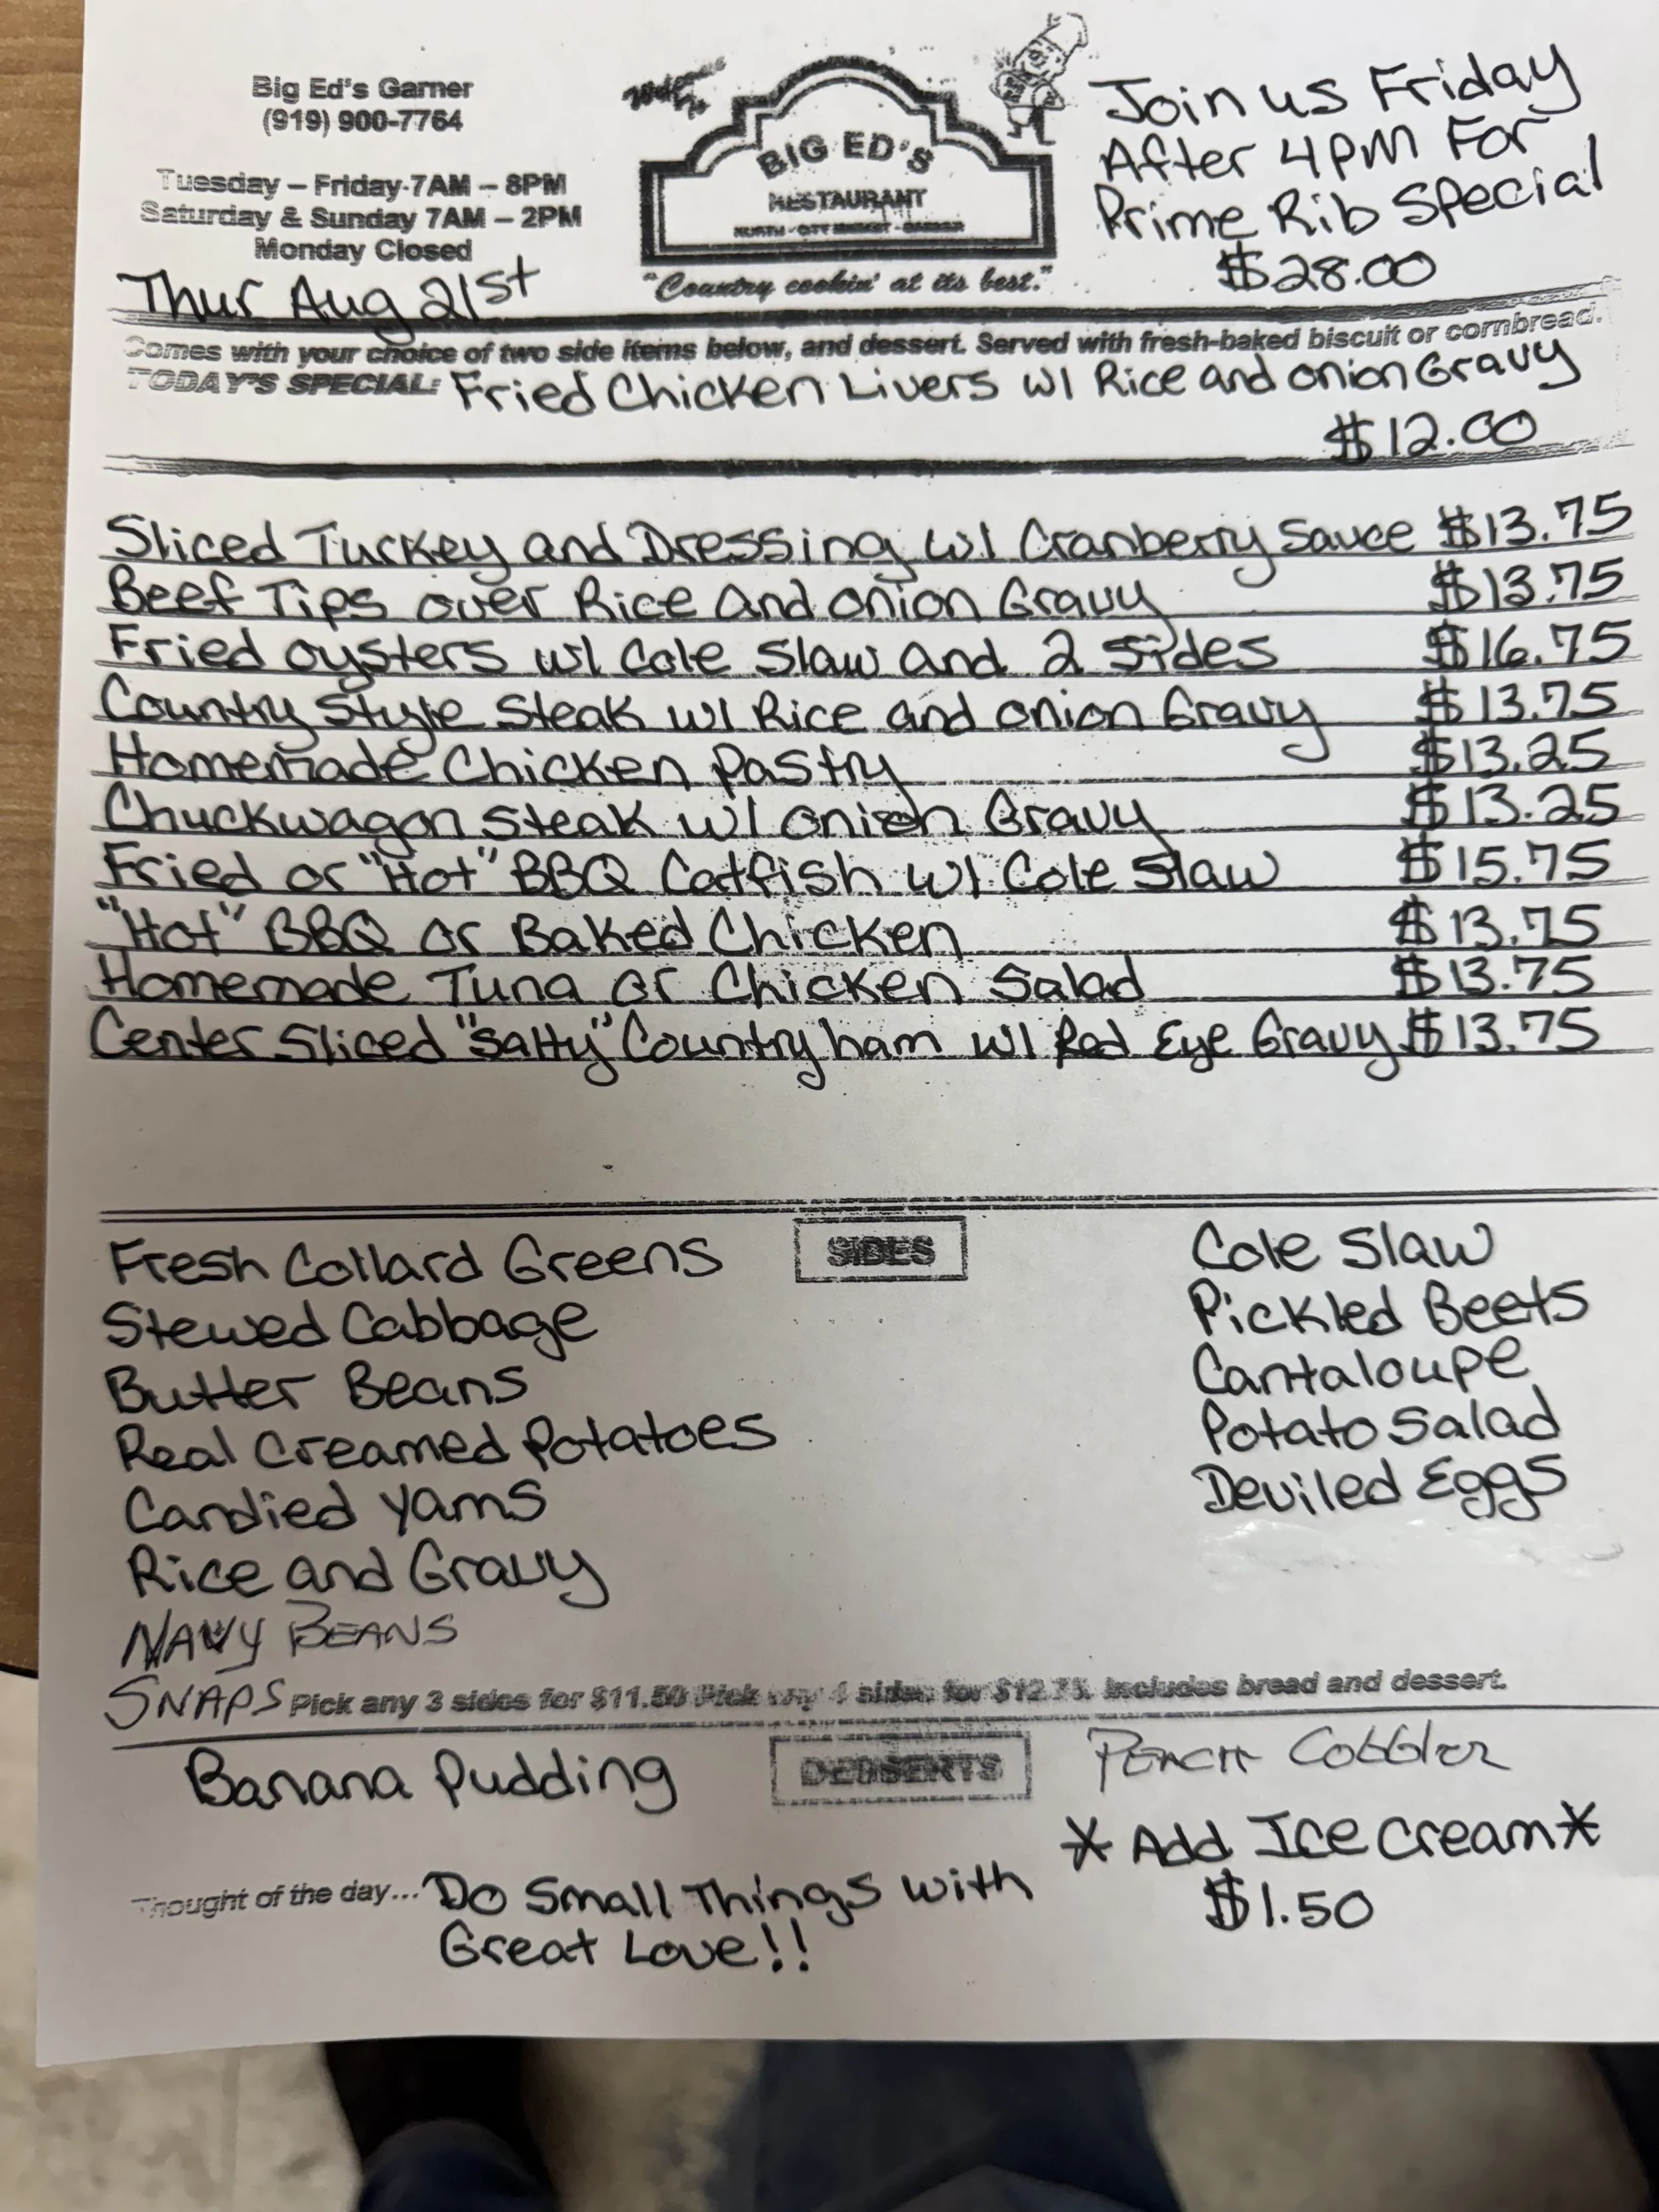 Big Ed's Garner
(919) 900-7764
Tuesday – Friday-7AM – 8PM
Saturday & Sunday 7AM – 2PM
Monday Closed
Thur Aug 21st
BIG ED'S
RESTAURANT
NORTH - CITY MARKET - GARNER
"Country cookin' at its best."
Join us Friday
After 4PM For
Prime Rib Special
$28.00
Comes with your choice of two side items below, and dessert. Served with fresh-baked biscuit or cornbread.
TODAY'S SPECIAL: Fried Chicken Livers w/ Rice and onion Gravy
$12.00
Sliced Turkey and Dressing w/ Cranberry Sauce $13.75
Beef Tips over Rice and onion Gravy $13.75
Fried oysters w/ Cole Slaw and 2 Sides $16.75
Country Style Steak w/ Rice and onion Gravy $13.75
Homemade Chicken Pastry $13.25
Chuckwagon Steak w/ onion Gravy $13.25
Fried or "Hot" BBQ Catfish w/ Cole Slaw $15.75
"Hot" BBQ or Baked Chicken $13.75
Homemade Tuna or Chicken Salad $13.75
Center Sliced "Salty" Country ham w/ Red Eye Gravy $13.75
SIDES
Fresh Collard Greens
Stewed Cabbage
Butter Beans
Real Creamed Potatoes
Candied Yams
Rice and Gravy
NAVY BEANS
SNAPS
Cole Slaw
Pickled Beets
Cantaloupe
Potato Salad
Deviled Eggs
Pick any 3 sides for $11.50 Pick any 4 sides for $12.75. Includes bread and dessert.
DESSERTS
Banana Pudding
PEACH CobbLer
* Add Ice Cream *
$1.50
Thought of the day... Do Small Things with
Great Love!!